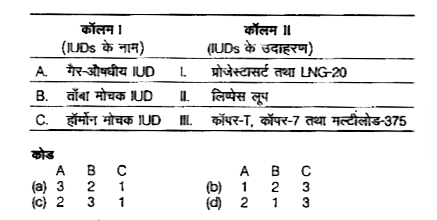 कॉलम I कॉलम II
(IUDs के नाम) (IUDs के उदाहरण)
A. गैर-औषधीय IUD I. प्रोजेस्टासर्ट तथा LNG-20
B. ताँबा मोचक IUD II. लिप्पेस लूप
C. हॉर्मोन मोचक IUD III. कॉपर-T, कॉपर-7 तथा मल्टीलोड-375
कोड
A B C A B C
(a) 3 2 1 (b) 1 2 3
(c) 2 3 1 (d) 2 1 3